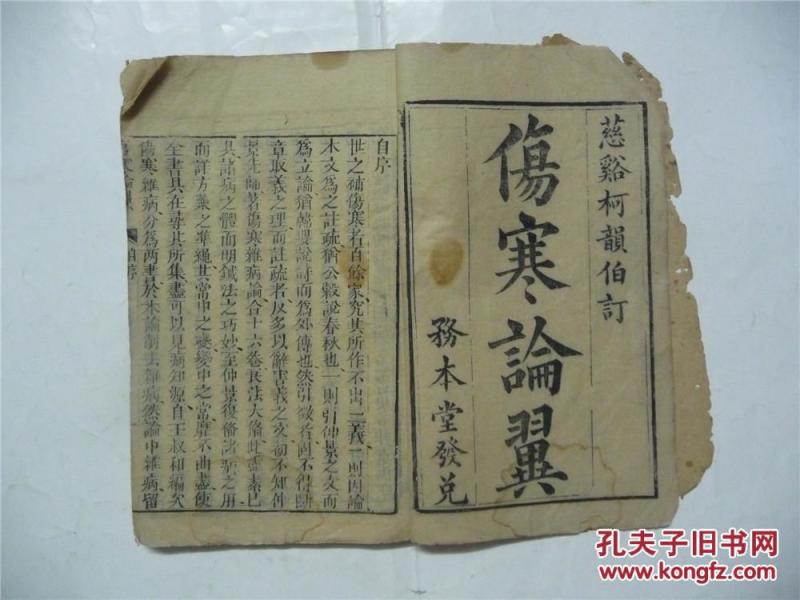 慈谿柯韻伯訂
傷寒論翼
務本堂發兌
自序
世之補傷寒者百餘家究其所作不出二義一則因論
本文爲之註疏猶公穀說春秋也一則引仲景之文而
爲立論猶韓嬰說詩而爲外傳也然引徵者固不得斷
章取義之理而註疏者反多以辭害義之文初不知仲
景先師著傷寒雜病論合十六卷良法大備此靈素已
具諸病之體而明鍼法之巧妙至仲景復備諸病之用
而詳方藥之準繩其常中之變變中之常靡不曲盡使
全書具在尋其所集盡可以見病知源自王叔和編次
傷寒雜病分爲两書於本論削去雜病然論中雜病留
自序
孔夫子旧书网
www.kongfz.com